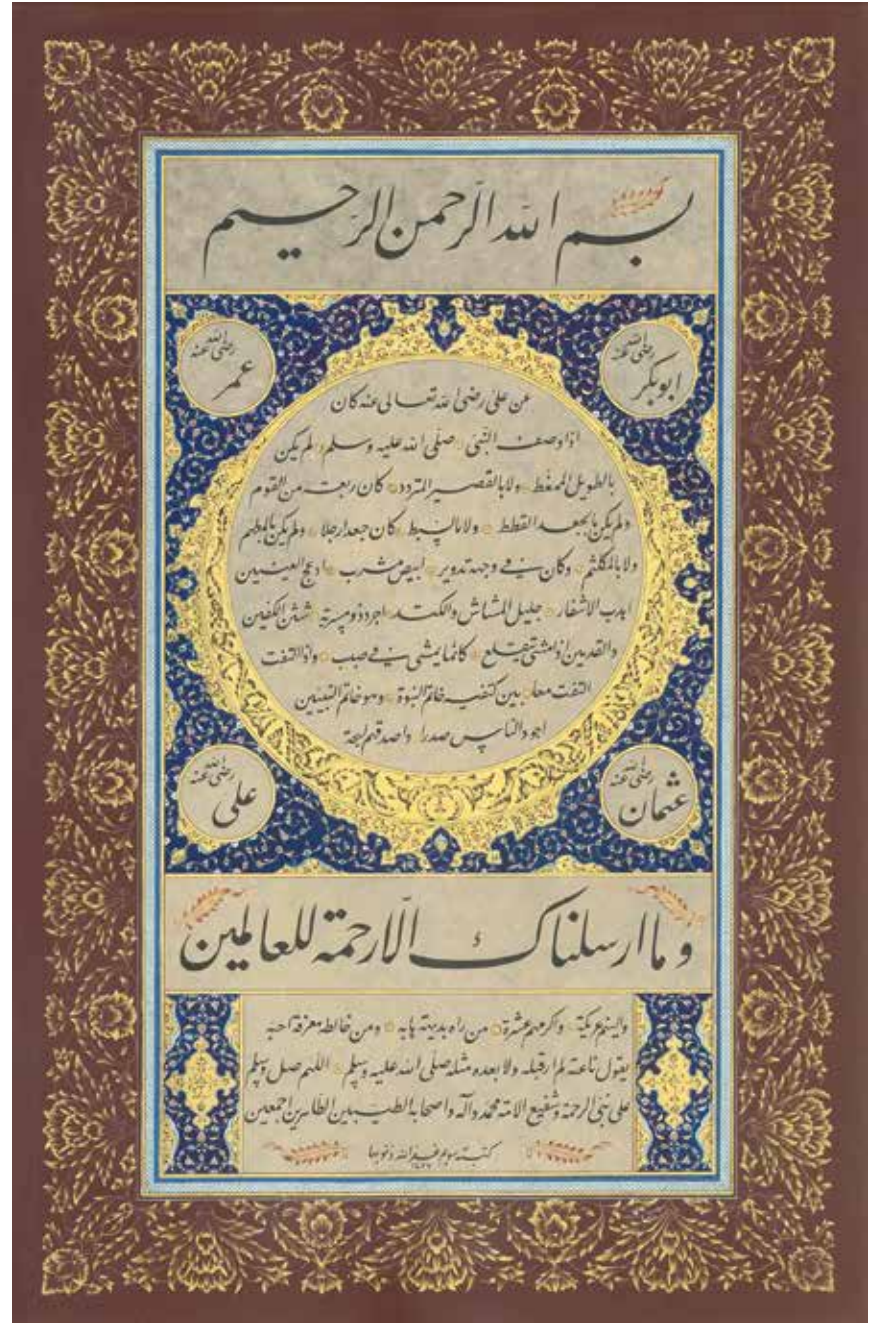 بسم الله الرحمن الرحيم
ابوبكر رضى الله عنه
عمر رضى الله عنه
عن على رضى الله تعالى عنه كان
اذا وصف النبى صلى الله عليه وسلم لم يكن
بالطويل الممغط ولا بالقصير المتردد كان ربعة من القوم
ولم يكن بالجعد القطط ولا بالسبط كان جعدا رجلا ولم يكن بالمطهم
ولا بالمكلثم وكان فى وجهه تدوير ابيض مشرب ادعج العينين
اهدب الاشفار جليل المشاش والكتد اجرد ذو مسربة شثن الكفين
والقدمين اذا مشى تقلع كانما يمشى فى صبب واذا التفت
التفت معا بين كتفيه خاتم النبوة وهو خاتم النبيين
اجود الناس صدرا واصدقهم لهجة
عثمان رضى الله عنه
على رضى الله عنه
وما ارسلناك الّا رحمة للعالمين
والينهم عريكة واكرمهم عشرة من راه بديهة هابه ومن خالطه معرفة احبه
يقول ناعته لم ار قبله ولا بعده مثله صلى الله عليه وسلم اللهم صل وسلم
على نبى الرحمة وشفيع الامة محمد وآله واصحابه الطيبين الطاهرين اجمعين
كتبته مريم غفر الله ذنوبها